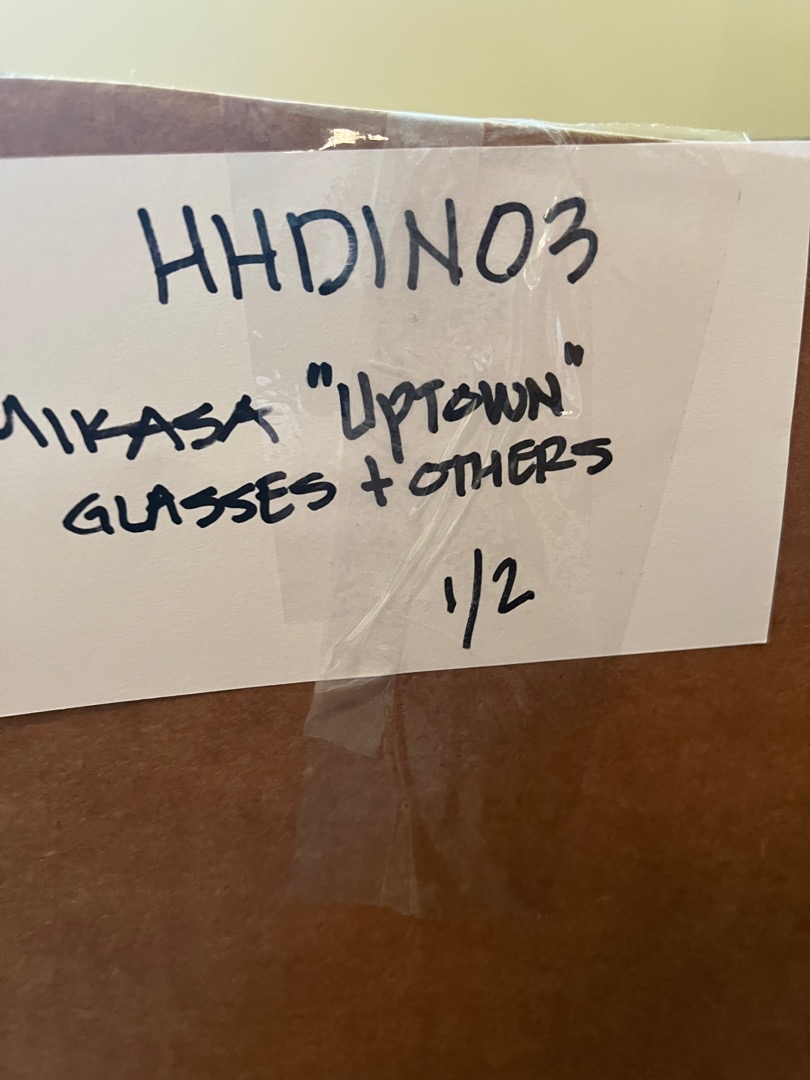 HHDIN03
MIKASA "UPTOWN"
GLASSES + OTHERS
1/2